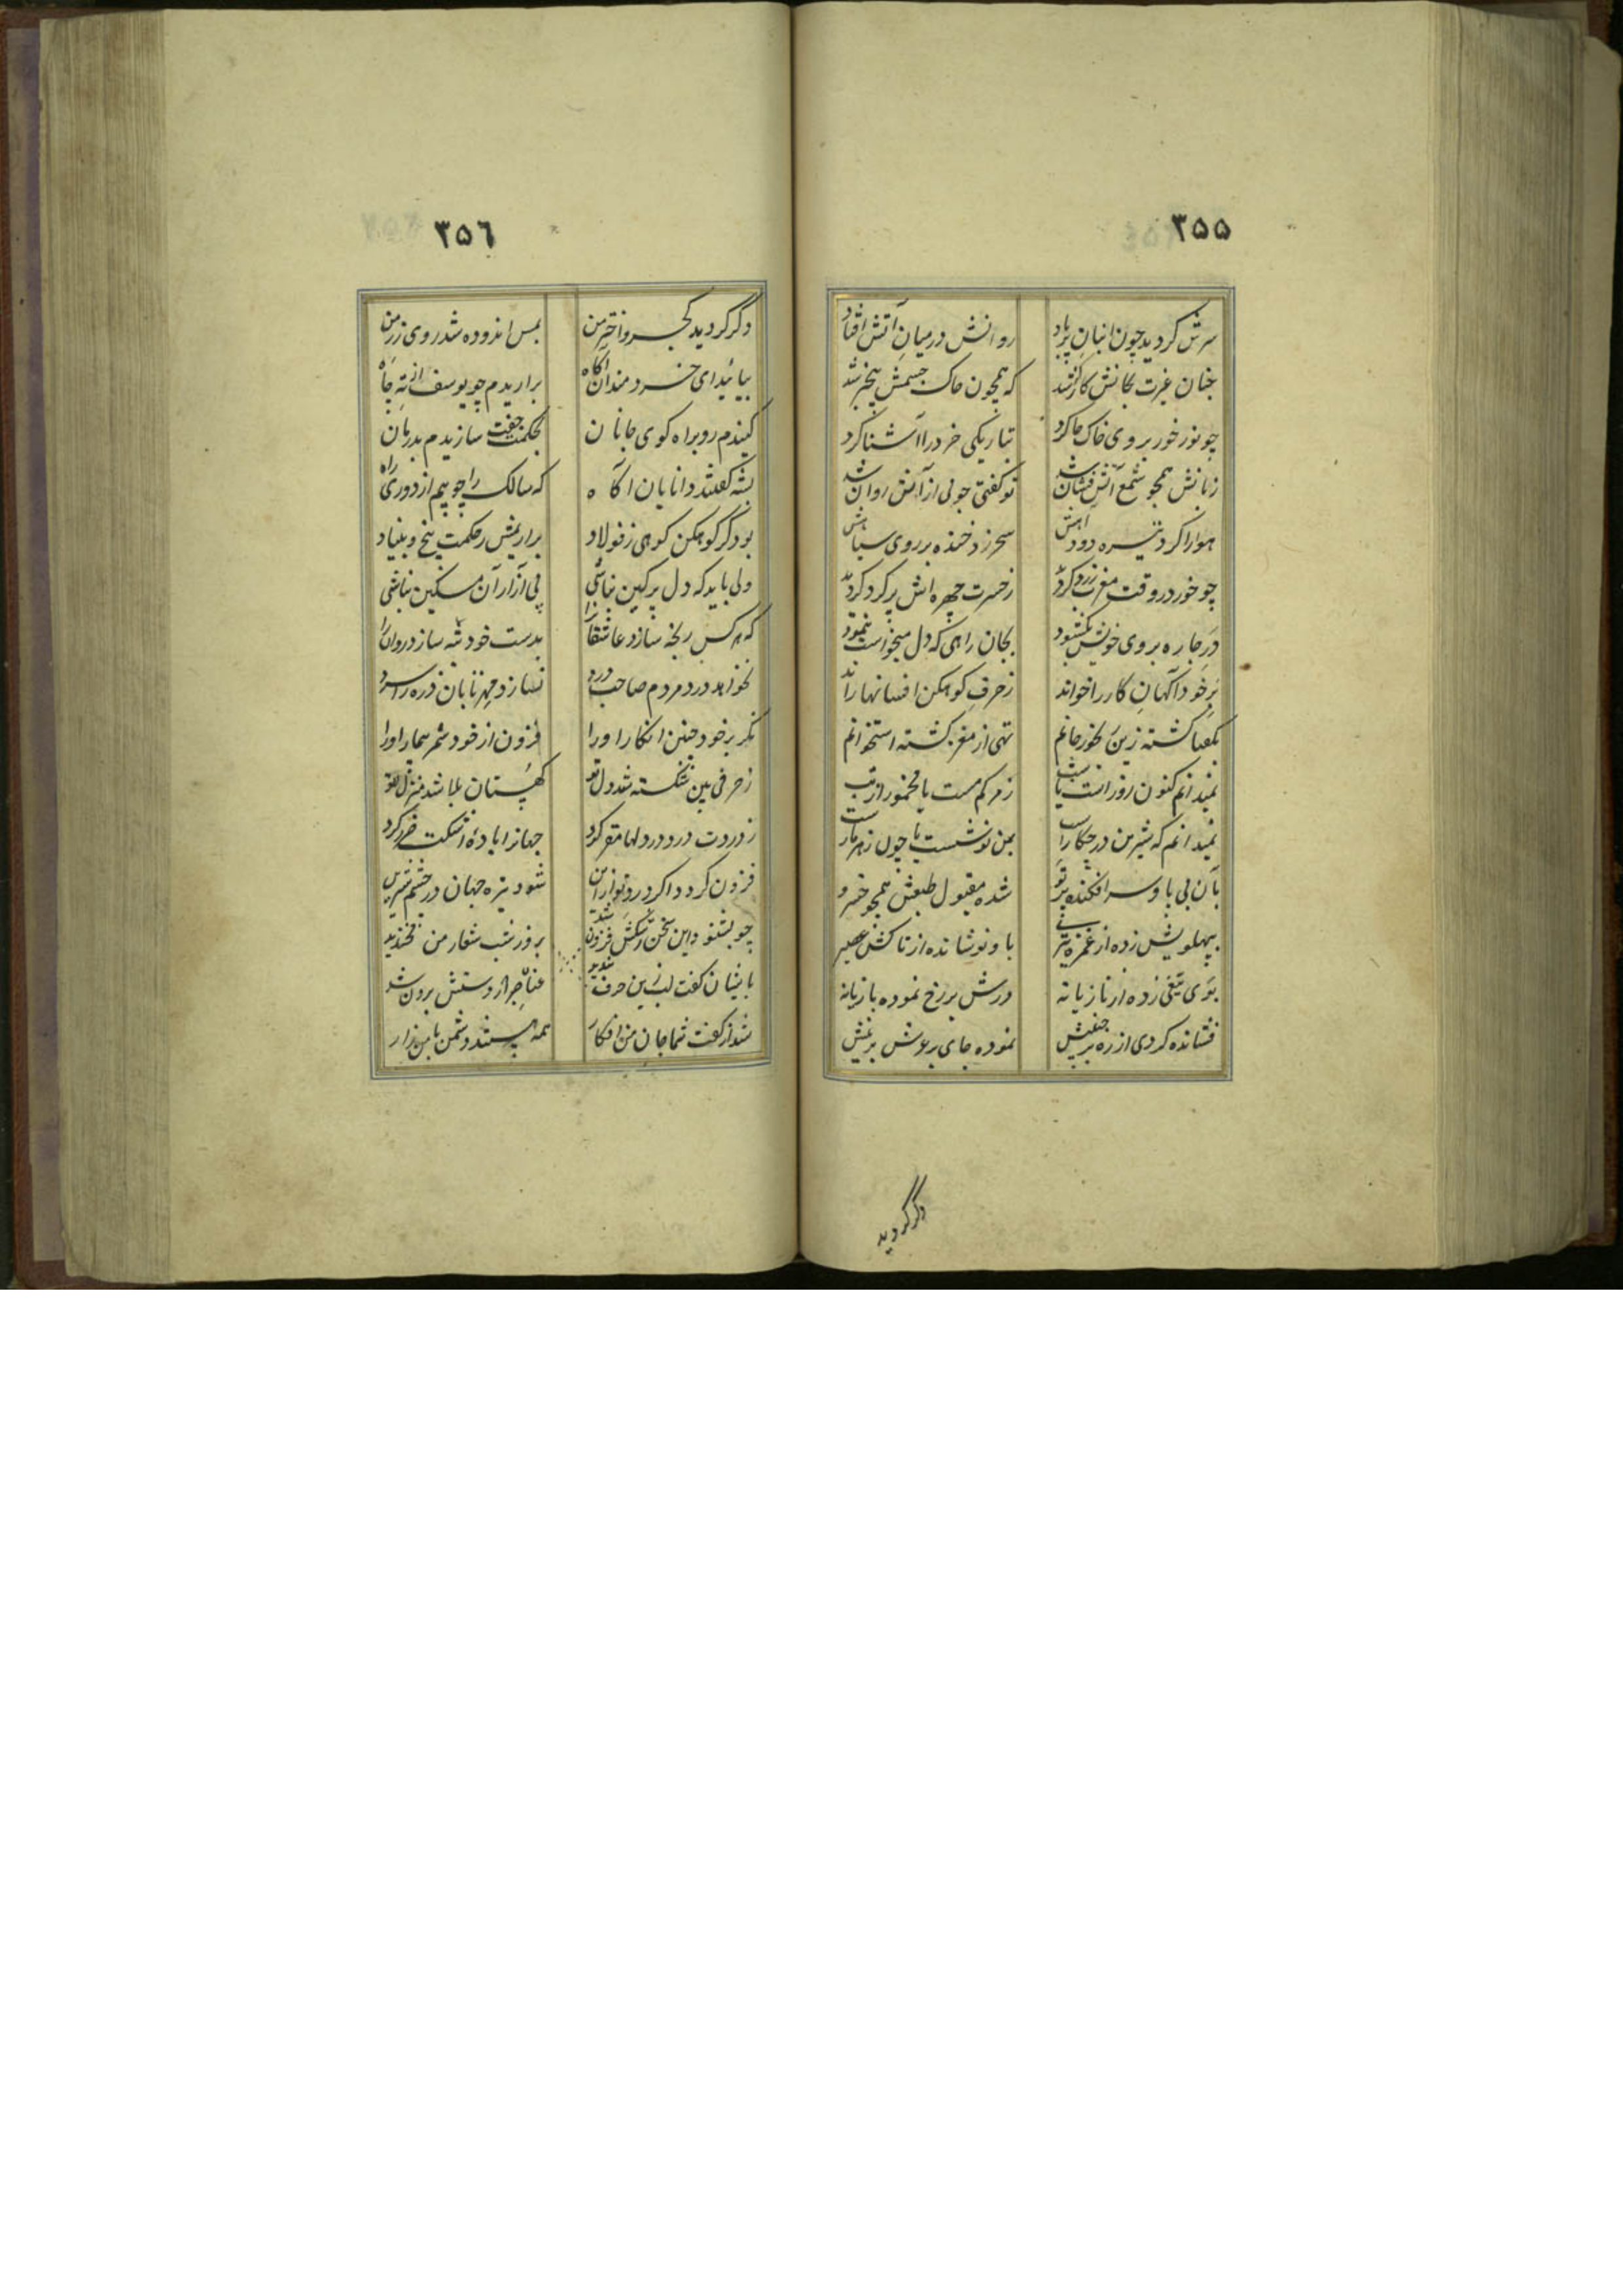 ۳۵۵
سرش گردید چون انبان پرباد روانش در میان آتش افتاد
چنان غیرت بجانش کارگر شد که همچون خاک جسمش بیخبر شد
چو نور خور بروی خاک جا کرد بتاریکی خرد را آشنا کرد
زبانش همچو شمع آتش فشان شد تو گفتی جوئی از آتش روان شد
هوا را کرد تیره دود آهش سحر زد خنده بر روی سیاهش
چو خور در وقت مغرب زرد گردید ز حسرت چهره اش پر گرد گردید
در چاره بروی خویش بگشود بجان راهی که دل میخواست بنمود
بر خود آگهان کار را خواند ز حرف کوهکن افسانها راند
بگفتا گشته زین غم خور جانم تهی از مغز گشته استخوانم
نمیدانم کنون روز است یا شب ز مرگم مست یا مخمور از تب
نمیدانم که شیرین در چه کار است بمن نوش است یا چون زهر مار است
بآن بی پا و سر افکنده پرتو شده مقبول طبعش همچو خسرو
بپهلویش زده از غمزه تیری باو نوشانده از تاکش عصیر
بوی تیغی زده از نازیانه درش بر رخ نموده بازیانه
فشانده گردی از ره بر جنبش نموده جای رعوش بر عیش
دگر گردید
۳۵۶
دگر گردید کجرو اختر من بمس اندوده شد روی زر من
بیائید ای خردمندان آگاه برآریدم چو یوسف از ته چاه
کنیدم رو براه کوی جانان بحکمت جفت سازیدم بدرمان
بشه گفتند دانایان آگاه که سالک را چه بیم از دوری راه
بود گر کوهکن کوهی ز فولاد برآریمش ز حکمت بیخ و بنیاد
ولی باید که دل پر کین نباشی پی آزار آن مسکین نباشی
که هر کس رنجه سازد عاشقانرا بدست خود تبه سازد روانرا
نخواهد درد مردم صاحب درد نسازد مهر تابان ذره را سرد
نگر بر خود چنین انگار او را فزون از خود شمر بیمار او را
ز حرفی بین شکسته شد دل تو کهستان بلا شد منزل تو
ز دردت درد در دلها مقر کرد جهانرا بادهٔ اشکت خبر کرد
فزون گردد اگر درد تو از این شود تیره جهان در چشم شیرین
چو بشنود این سخن رشکش فزون شد عنان جبر از دستش برون شد
باینان گفت لب زین حرف بندید بروز شب شعار من نخندید
شد از گفت شما جان من افکار همه هستند دشمن با من زار